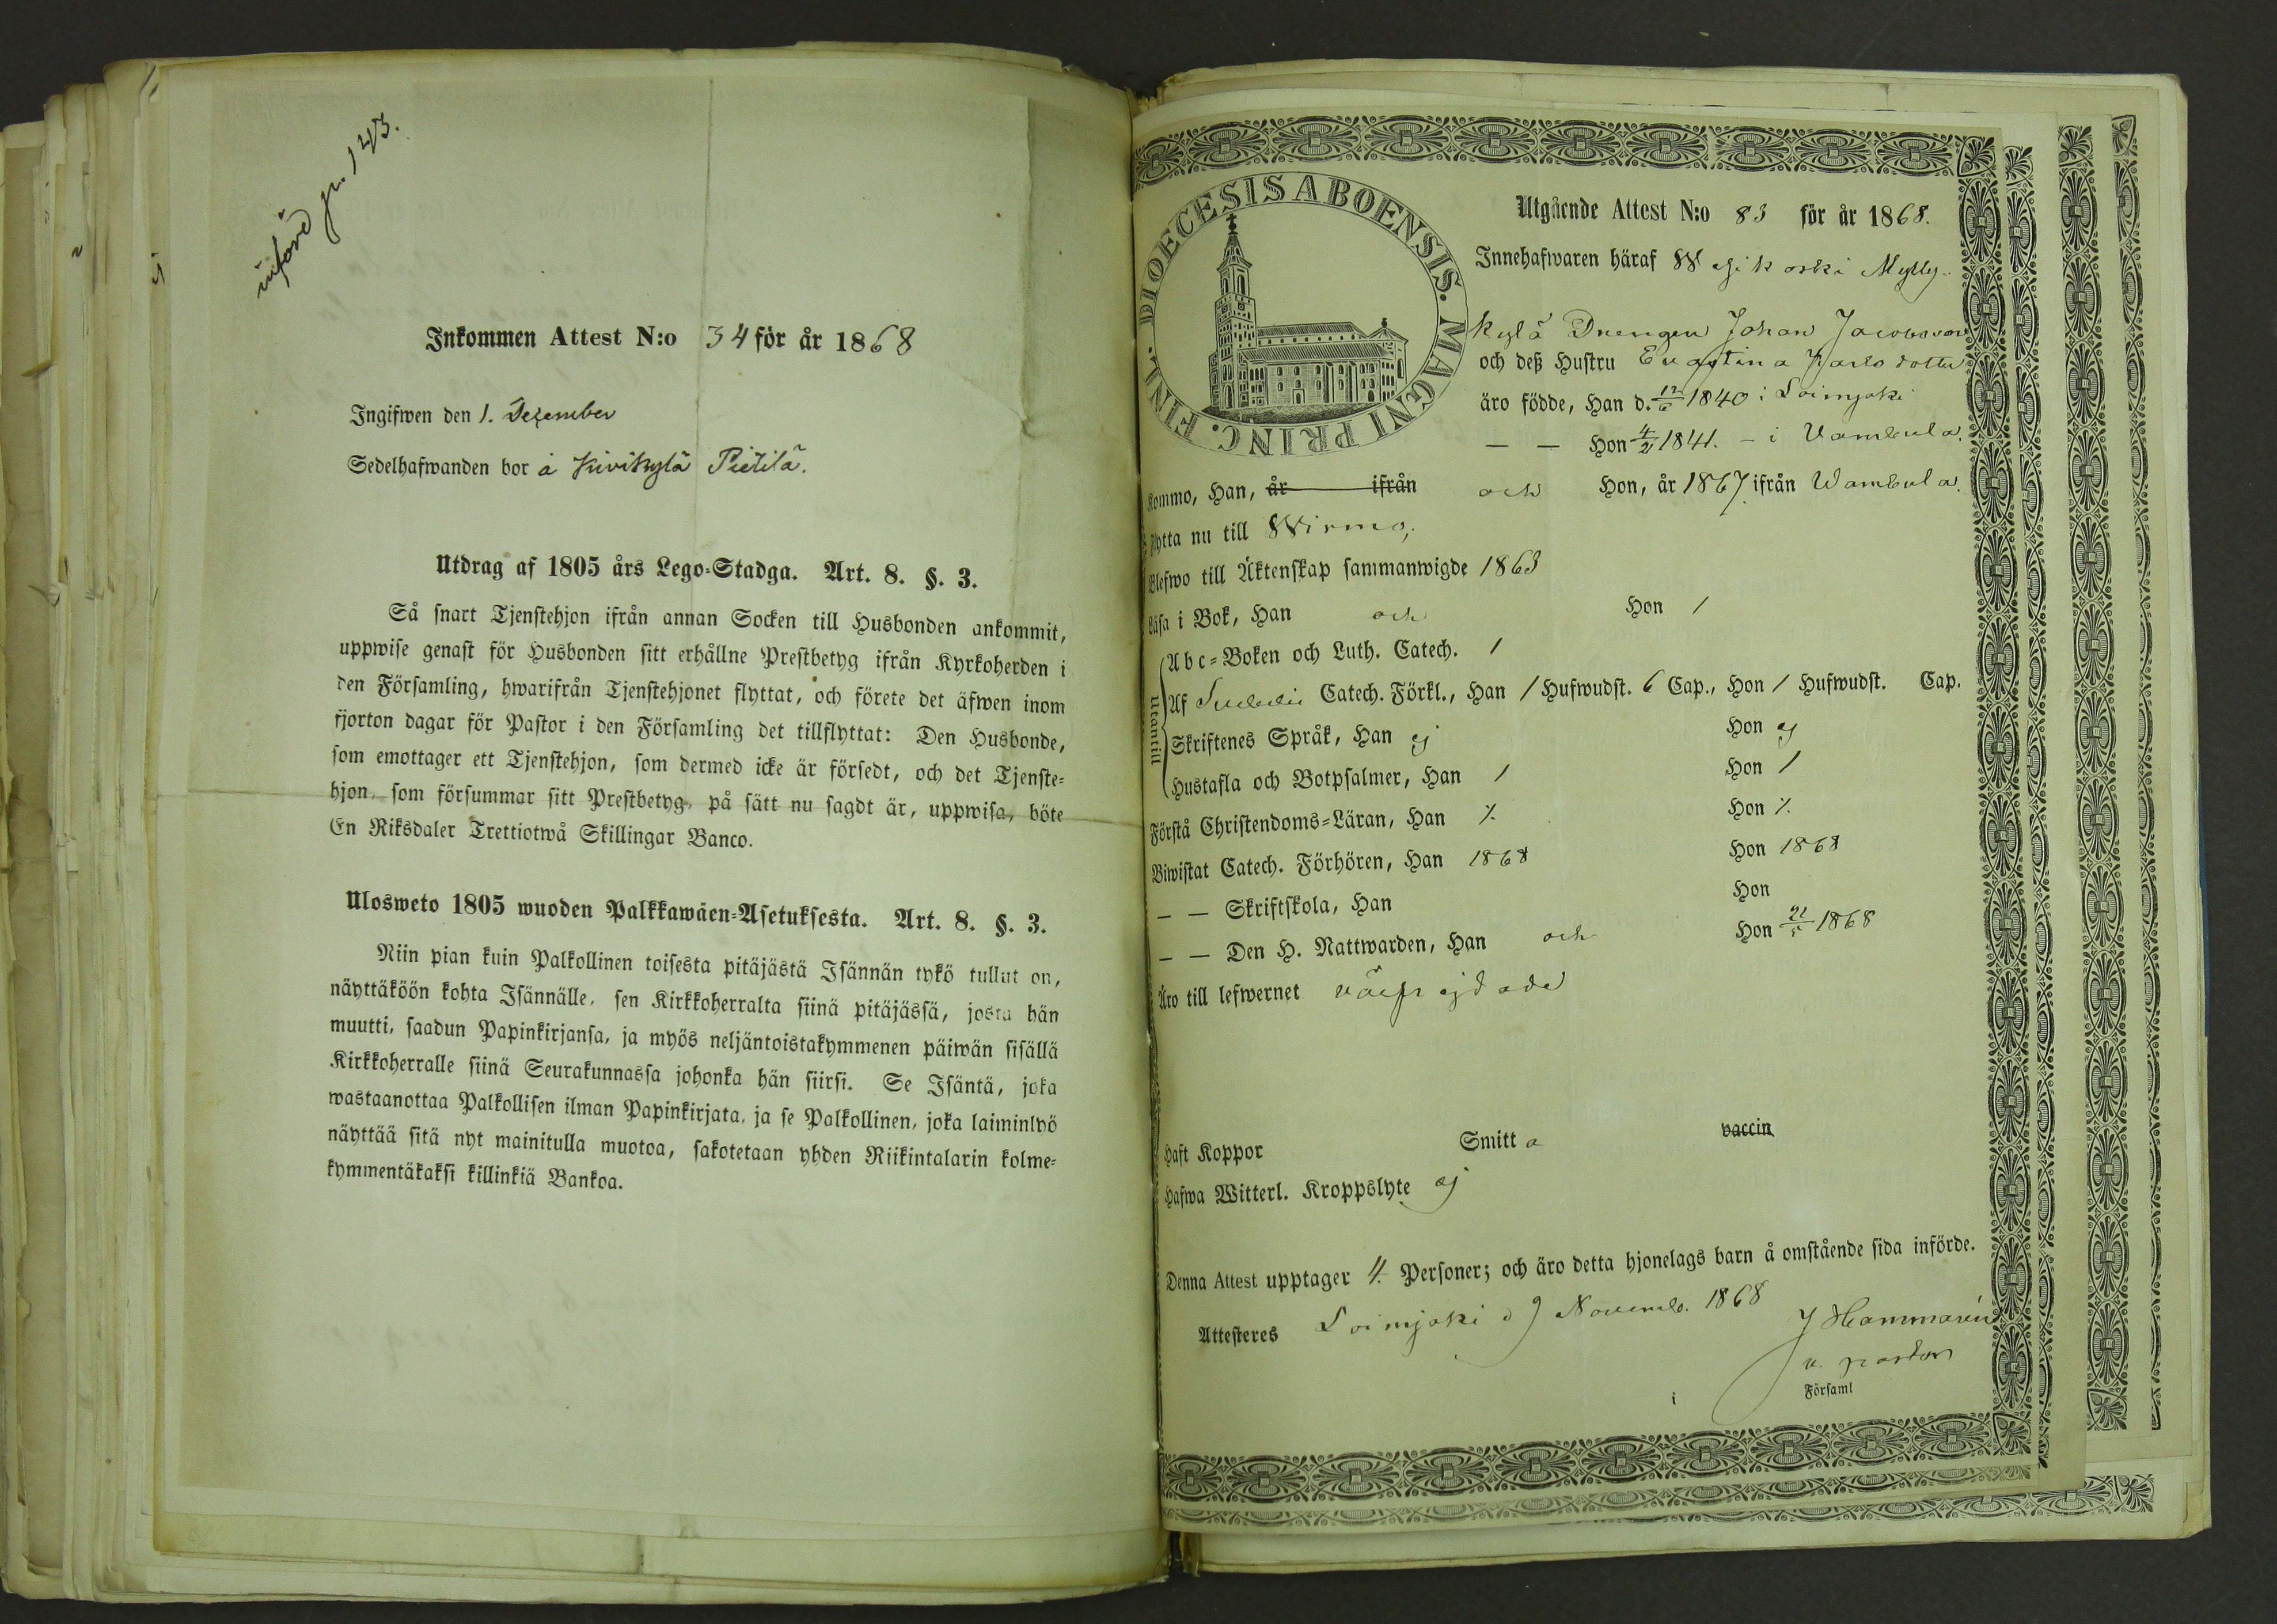 införd p. 143.
Inkommen Attest N:o 34 för år 1868
Ingifwen den 1. Dezember
Sedelhafwanden bor å Kivikylä Pietilä.
Utdrag af 1805 års Lego-Stadga. Art. 8. §. 3.
Så snart Tjenstehjon ifrån annan Socken till Husbonden ankommit,
uppwise genast för Husbonden sitt erhållne Prestbetyg ifrån Kyrkoherden i
den Församling, hwarifrån Tjenstehjonet flyttat, och förete det äfwen inom
fjorton dagar för Pastor i den Församling det tillflyttat: Den Husbonde,
som emottager ett Tjenstehjon, som dermed icke är försedt, och det Tjenste-
hjon, som försummar sitt Prestbetyg, på sätt nu sagdt är, uppwisa, böte
En Riksdaler Trettiotwå Skillingar Banco.
Ulosweto 1805 wuoden Palkkawäen-Asetuksesta. Art. 8. §. 3.
Niin pian kuin Palkollinen toisesta pitäjästä Isännän tykö tullut on,
näyttäköön kohta Isännälle, sen Kirkkoherralta siinä pitäjässä, josta hän
muutti, saadun Papinkirjansa, ja myös neljäntoistakymmenen päiwän sisällä
Kirkkoherralle siinä Seurakunnassa johonka hän siirsi. Se Isäntä, joka
wastaanottaa Palkollisen ilman Papinkirjata, ja se Palkollinen, joka laiminlyö
näyttää sitä nyt mainitulla muotoa, sakotetaan yhden Riikintalarin kolme-
kymmentäkaksi killinkiä Bankoa.
DIOECESIS ABOENSIS. MAGNI PRINC. FINL.
Utgående Attest N:o 83 för år 1868.
Innehafwaren häraf Wesikoski Mylly-
kylä Drengen Johan Jacobsson
och deß Hustru Evastina Karlsdotter
äro födde, Han d. 12/6 1840 i Loimjoki
— — Hon 4/2 1841. - i Vambula.
Kommo, Han, år ifrån och Hon, år 1867 ifrån Wambula.
Flytta nu till Wirmo,
Blefwo till Äktenskap sammanwigde 1863
Läsa i Bok, Han och Hon 1
Utantill
Abc-Boken och Luth. Catech. 1
Af Svebelii Catech. Förkl., Han 1 Hufwudst. 6 Cap., Hon 1 Hufwudst. Cap.
Skriftenes Språk, Han ej Hon ej
Hustafla och Botpsalmer, Han 1 Hon 1
Förstå Christendoms-Läran, Han ⁒ Hon ⁒
Biwistat Catech. Förhören, Han 1868 Hon 1868
— — Skriftskola, Han Hon
— — Den H. Nattwarden, Han och Hon 21/5 1868
Äro till lefwernet väl frejdade
Haft Koppor Smitta vaccin
Hafwa Witterl. Kroppslyte ej
Denna Attest upptager 4. Personer; och äro detta hjonelags barn å omstående sida införde.
Attesteres Loimjoki d 9 Novemb. 1868
J Hammarén
v. pastor
i Församl